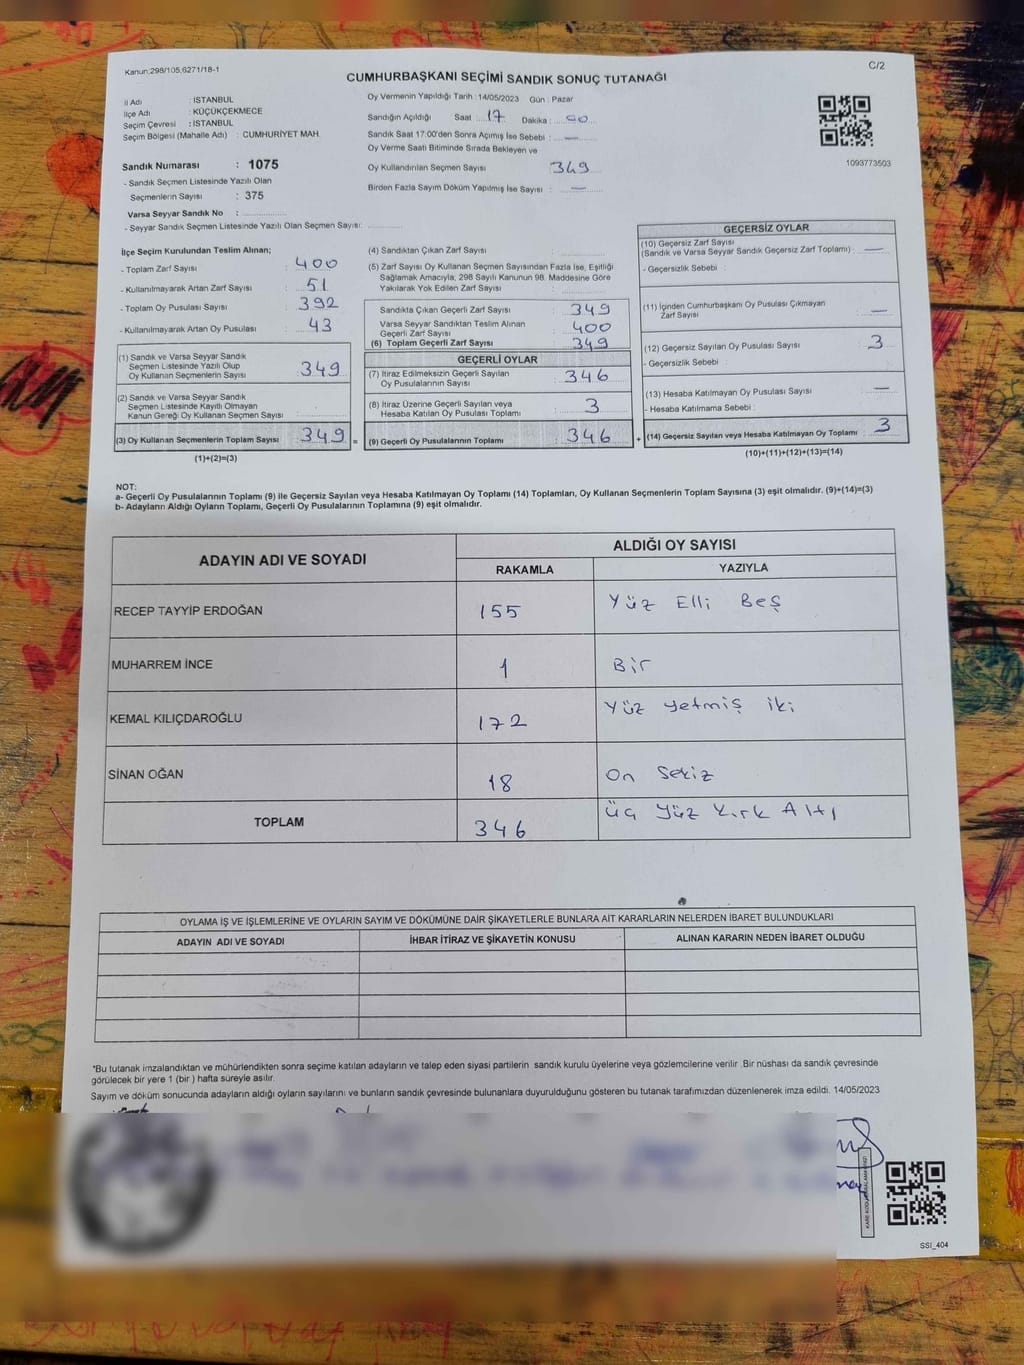 Kanun:298/105,6271/18-1
C/2
CUMHURBAŞKANI SEÇİMİ SANDIK SONUÇ TUTANAĞI
İl Adı : İSTANBUL
İlçe Adı : KÜÇÜKÇEKMECE
Seçim Çevresi : İSTANBUL
Seçim Bölgesi (Mahalle Adı) : CUMHURİYET MAH.
Sandık Numarası : 1075
- Sandık Seçmen Listesinde Yazılı Olan
Seçmenlerin Sayısı : 375
Varsa Seyyar Sandık No :
- Seyyar Sandık Seçmen Listesinde Yazılı Olan Seçmen Sayısı:
Oy Vermenin Yapıldığı Tarih : 14/05/2023 Gün : Pazar
Sandığın Açıldığı Saat 17 Dakika : 00
Sandık Saat 17:00'den Sonra Açımış İse Sebebi : —
Oy Verme Saati Bitiminde Sırada Bekleyen ve
Oy Kullandırılan Seçmen Sayısı 349
Birden Fazla Sayım Döküm Yapılmış İse Sayısı : —
1093773503
İlçe Seçim Kurulundan Teslim Alınan;
- Toplam Zarf Sayısı : 400
- Kullanılmayarak Artan Zarf Sayısı : 51
- Toplam Oy Pusulası Sayısı : 392
- Kullanılmayarak Artan Oy Pusulası : 43
(1) Sandık ve Varsa Seyyar Sandık
Seçmen Listesinde Yazılı Olup
Oy Kullanan Seçmenlerin Sayısı : 349
(2) Sandık ve Varsa Seyyar Sandık
Seçmen Listesinde Kayıtlı Olmayan
Kanun Gereği Oy Kullanan Seçmen Sayısı :
(3) Oy Kullanan Seçmenlerin Toplam Sayısı : 349 =
(1)+(2)=(3)
(4) Sandıktan Çıkan Zarf Sayısı :
(5) Zarf Sayısı Oy Kullanan Seçmen Sayısından Fazla İse, Eşitliği
Sağlamak Amacıyla; 298 Sayılı Kanunun 98. Maddesine Göre
Yakılarak Yok Edilen Zarf Sayısı :
Sandıkta Çıkan Geçerli Zarf Sayısı : 349
Varsa Seyyar Sandıktan Teslim Alınan
Geçerli Zarf Sayısı : 400
(6) Toplam Geçerli Zarf Sayısı : 349
GEÇERLİ OYLAR
(7) İtiraz Edilmeksizin Geçerli Sayılan
Oy Pusulalarının Sayısı : 346
(8) İtiraz Üzerine Geçerli Sayılan veya
Hesaba Katılan Oy Pusulası Toplamı : 3
(9) Geçerli Oy Pusulalarının Toplamı : 346 +
GEÇERSİZ OYLAR
(10) Geçersiz Zarf Sayısı
(Sandık ve Varsa Seyyar Sandık Geçersiz Zarf Toplamı) : —
- Geçersizlik Sebebi :
(11) İçinden Cumhurbaşkanı Oy Pusulası Çıkmayan
Zarf Sayısı : —
(12) Geçersiz Sayılan Oy Pusulası Sayısı : 3
- Geçersizlik Sebebi :
(13) Hesaba Katılmayan Oy Pusulası Sayısı : —
- Hesaba Katılmama Sebebi :
(14) Geçersiz Sayılan veya Hesaba Katılmayan Oy Toplamı : 3
(10)+(11)+(12)+(13)=(14)
NOT:
a- Geçerli Oy Pusulalarının Toplamı (9) ile Geçersiz Sayılan veya Hesaba Katılmayan Oy Toplamı (14) Toplamları, Oy Kullanan Seçmenlerin Toplam Sayısına (3) eşit olmalıdır. (9)+(14)=(3)
b- Adayların Aldığı Oyların Toplamı, Geçerli Oy Pusulalarının Toplamına (9) eşit olmalıdır.
ADAYIN ADI VE SOYADI
ALDIĞI OY SAYISI
RAKAMLA YAZIYLA
RECEP TAYYİP ERDOĞAN 155 Yüz Elli Beş
MUHARREM İNCE 1 Bir
KEMAL KILIÇDAROĞLU 172 Yüz yetmiş iki
SİNAN OĞAN 18 On Sekiz
TOPLAM 346 üç Yüz Kırk Altı
OYLAMA İŞ VE İŞLEMLERİNE VE OYLARIN SAYIM VE DÖKÜMÜNE DAİR ŞİKAYETLERLE BUNLARA AİT KARARLARIN NELERDEN İBARET BULUNDUKLARI
ADAYIN ADI VE SOYADI İHBAR İTİRAZ VE ŞİKAYETİN KONUSU ALINAN KARARIN NEDEN İBARET OLDUĞU
*Bu tutanak imzalandıktan ve mühürlendikten sonra seçime katılan adayların ve talep eden siyasi partilerin sandık kurulu üyelerine veya gözlemcilerine verilir. Bir nüshası da sandık çevresinde
görülecek bir yere 1 (bir ) hafta süreyle asılır.
Sayım ve döküm sonucunda adayların aldığı oyların sayılarını ve bunların sandık çevresinde bulunanlara duyurulduğunu gösteren bu tutanak tarafımızdan düzenlenerek imza edildi. 14/05/2023
SSİ_404